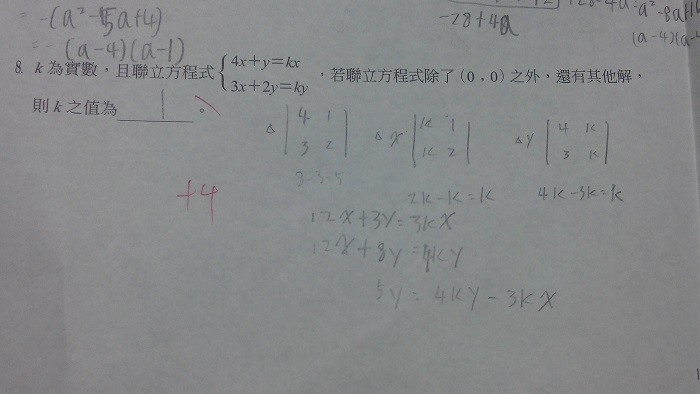 -(a²-5a+4)
-28+4a
a²-8a+16
= -(a-4)(a-1)
(a-4)(a-4
8. k 為實數，且聯立方程式 { 4x+y=kx
3x+2y=ky ，若聯立方程式除了 (0,0) 之外，還有其他解，
則 k 之值為 1 。
△ | 4 1 | △X | k 1 | △Y | 4 k |
| 3 2 | | k 2 | | 3 k |
2k-k=k 4k-3k=k
+4
12X+3Y=3kX
12X+8Y=4kY
5Y=4kY-3kX
1